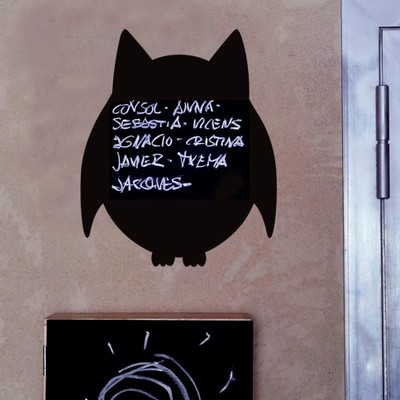 CONSOL - ANNA -
SEBASTIÀ - VICENS
IGNACIO - CRISTINA
JAVIER - TXEMA
JACQUES -